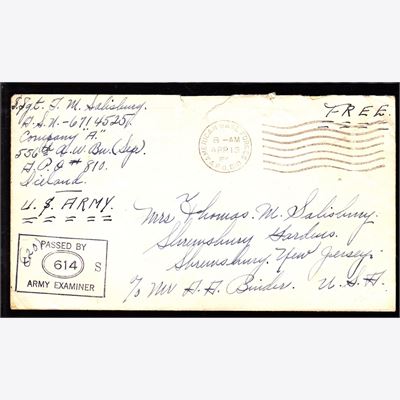 S.Sgt. T. M. Salisbury.
A.S.N. - 6714525.
Company "A."
556th A.W. Bn. (Sep).
A.P.O # 810.
Iceland.
U.S. ARMY.
FREE.
8 - AM
APR 15
Mrs Thomas. M. Salisbury.
Shrewsbury Gardens.
Shrewsbury. New Jersey.
c/o Mr A. A. Binder. U.S.A.
PASSED BY
614 S
ARMY EXAMINER